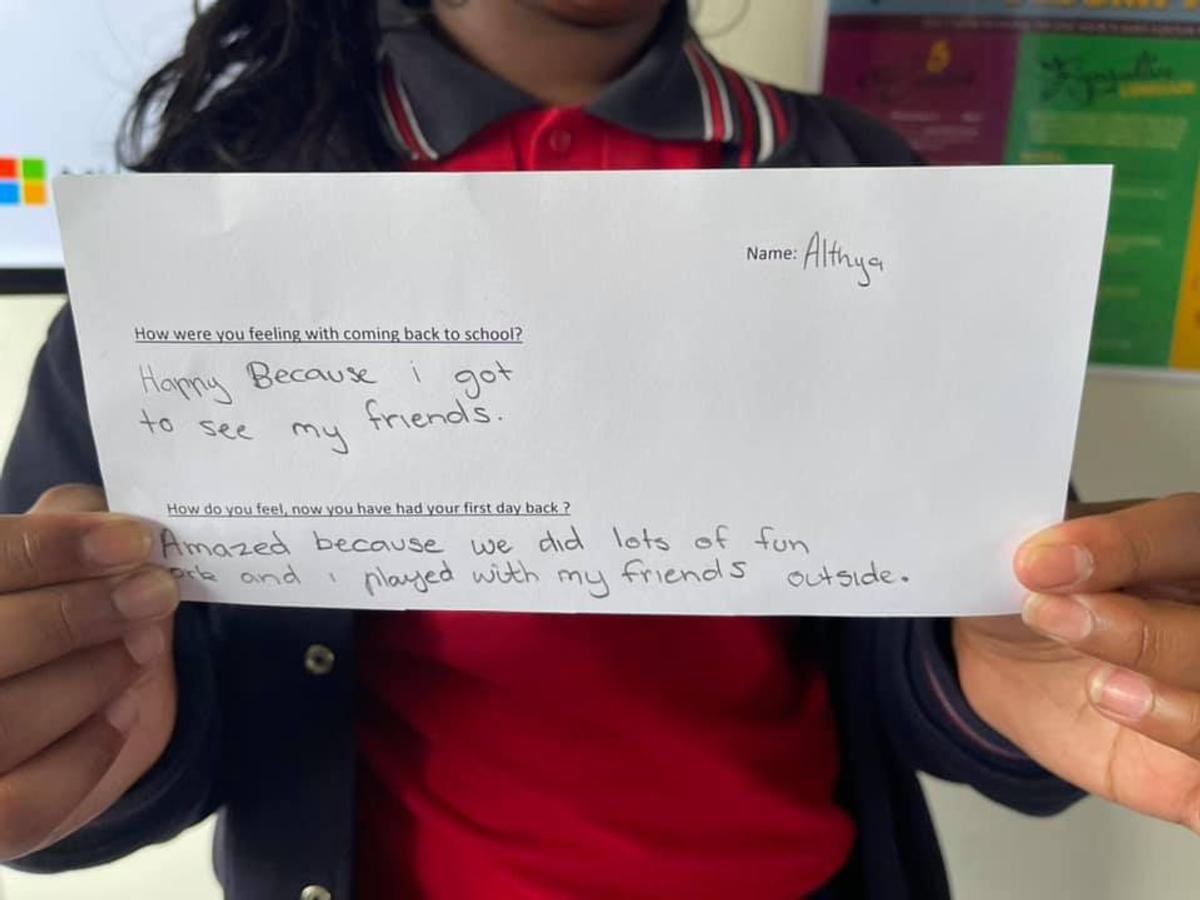 Name: Althya
How were you feeling with coming back to school?
Happy Because i got
to see my friends.
How do you feel, now you have had your first day back ?
Amazed because we did lots of fun
and i played with my friends outside.